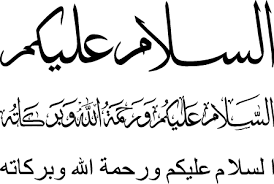 السلام عليكم
السَّلَامُ عَلَيْكُمْ وَرَحْمَةُ اللهِ وَبَرَكَاتُهُ
السلام عليكم ورحمة الله وبركاته